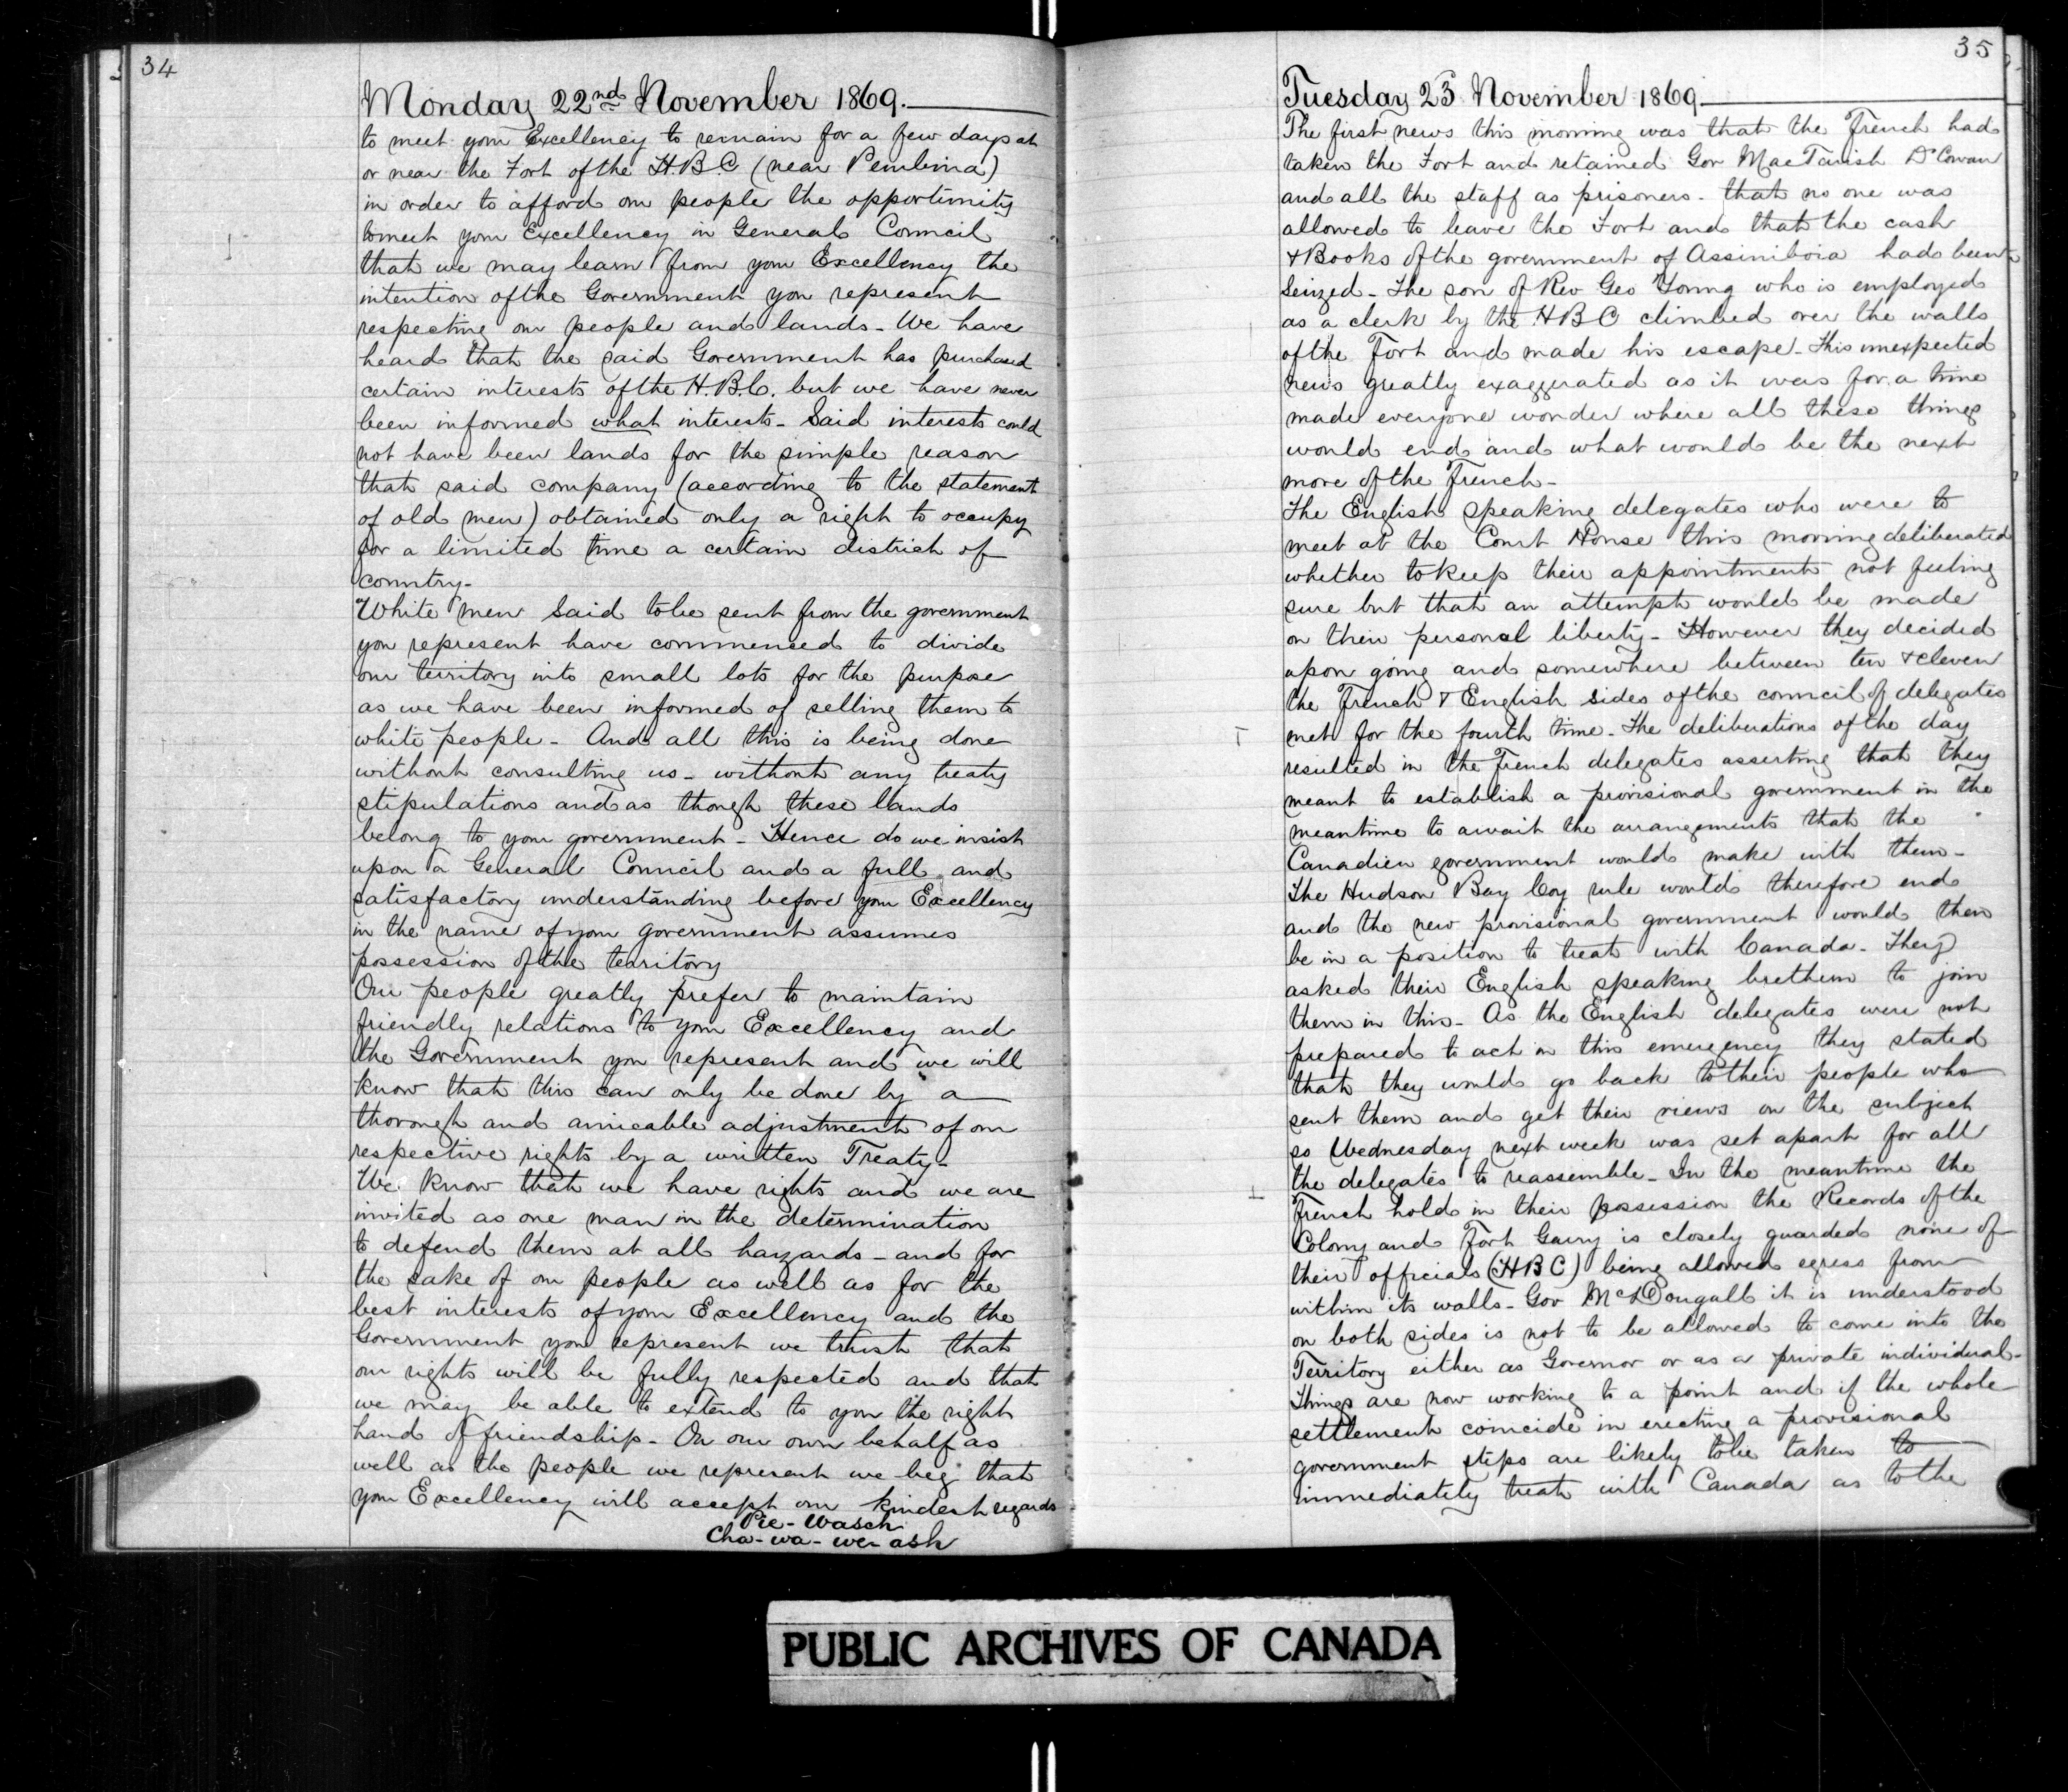 34
Monday 22nd November 1869.
to meet your Excellency to remain for a few days at
or near the Fort of the H.B.C (near Pembina)
in order to afford our people the opportunity
to meet your Excellency in General Council
that we may learn from your Excellency the
intention of the Government you represent
respecting our people and lands - We have
heard that the said Government has purchased
certain interests of the H.B.C. but we have never
been informed what interests - Said interests could
not have been lands for the simple reason
that said company (according to the statement
of old men) obtained only a right to occupy
for a limited time a certain district of
country -
White men said to be sent from the government
you represent have commenced to divide
our territory into small lots for the purpose
as we have been informed of selling them to
white people - And all this is being done
without consulting us - without any treaty
stipulations and as though these lands
belong to your government - Hence do we insist
upon a General Council and a full and
satisfactory understanding before your Excellency
in the name of your government assumes
possession of the territory
Our people greatly prefer to maintain
friendly relations to your Excellency and
the Government you represent and we will
know that this can only be done by a
thorough and amicable adjustment of our
respective rights by a written Treaty -
We know that we have rights and we are
invited as one man in the determination
to defend them at all hazards - and for
the sake of our people as well as for the
best interests of your Excellency and the
Government you represent we trust that
our rights will be fully respected and that
we may be able to extend to you the right
hand of friendship - On our own behalf as
well as the people we represent we beg that
your Excellency will accept our kindest regards
Pie - Wasch
Cha - wa - we - ask
35
Tuesday 23 November 1869.
The first news this morning was that the French had
taken the Fort and retained Gov MacTavish Dr Cowan
and all the staff as prisoners - that no one was
allowed to leave the Fort and that the cash
& Books of the government of Assiniboia had been
seized - The son of Rev Geo Young who is employed
as a clerk by the HBC climbed over the walls
of the Fort and made his escape - This unexpected
news greatly exaggerated as it was for a time
made everyone wonder where all these things
would end and what would be the next
move of the French -
The English speaking delegates who were to
meet at the Court House this morning deliberated
whether to keep their appointment not feeling
sure but that an attempt would be made
on their personal liberty - However they decided
upon going and somewhere between ten & eleven
the French & English sides of the council of delegates
met for the fourth time - The deliberations of the day
resulted in the French delegates asserting that they
meant to establish a provisional government in the
meantime to await the arrangements that the
Canadien government would make with them -
The Hudson Bay Coy rule would therefore end
and the new provisional government would then
be in a position to treat with Canada - They
asked their English speaking brethern to join
them in this - As the English delegates were not
prepared to act in this emergency they stated
that they would go back to their people who
sent them and get their views on the subject
so Wednesday next week was set apart for all
the delegates to reassemble - In the meantime the
French hold in their possession the Records of the
Colony and Fort Garry is closely guarded none of
their officials (HBC) being allowed egress from
within its walls - Gov McDougall it is understood
on both sides is not to be allowed to come into the
Territory either as Governor or as a private individual -
Things are now working to a point and if the whole
settlement coincide in erecting a provisional
government steps are likely to be taken to
immediately treat with Canada as to the
PUBLIC ARCHIVES OF CANADA